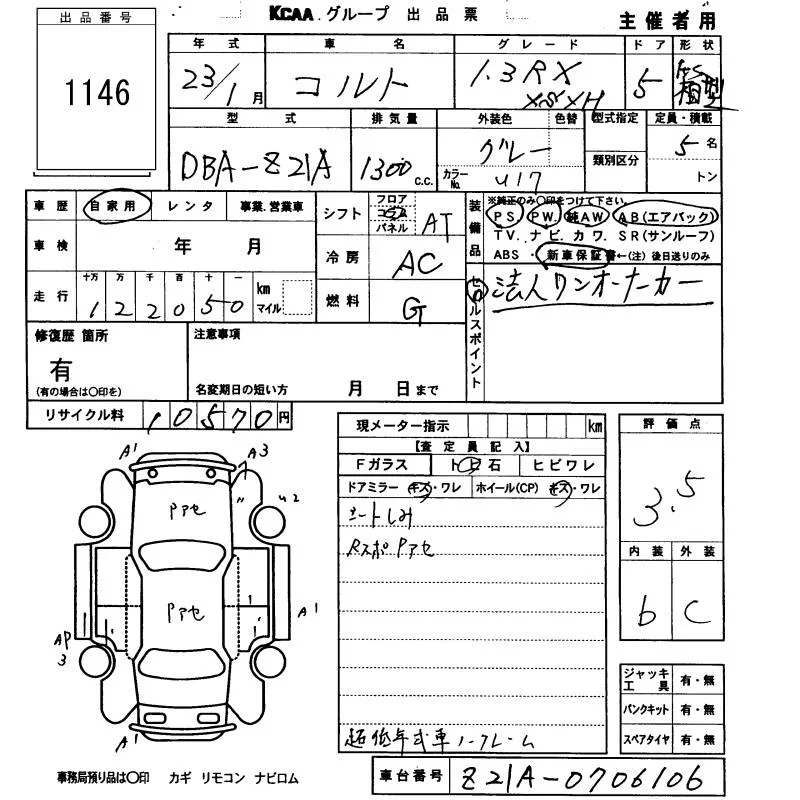 KCAA グループ 出品票
主催者用
出品番号
1146
年式 車名 グレード ドア 形状
23/1月 コルト 1.3RX 5 箱型
型式 排気量 外装色 色替 型式指定 定員・積載
DBA-Z21A 1300 c.c. グレー 5名
カラーNo. U17 類別区分 トン
車歴 自家用 レンタ 事業.営業車
車検 年 月
走行 十万 万 千 百 十 一
122050 km マイル
シフト フロア コラム パネル AT
冷房 AC
燃料 G
装備品 ※純正のみ〇印をつけて下さい。
PS PW. 純AW AB(エアバック)
TV. ナビ. カワ. SR(サンルーフ)
ABS ・ 新車保証書←(注)後日送りのみ
セールスポイント 法人ワンオーナーカー
修復歴 箇所
有
(有の場合は〇印を)
注意事項
名変期日の短い方 月 日まで
リサイクル料 10570円
現メーター指示 km
【査定員記入】
Fガラス ト ビ 石 ヒビワレ
ドアミラー キズ・ワレ ホイール(CP) キズ・ワレ
シートしみ
RスポPアセ
超低年式車ノークレーム
評価点
3.5
内装 外装
b C
ジャッキ工具 有・無
パンクキット 有・無
スペアタイヤ 有・無
A1 A3
Pアセ
U2
Pアセ
A1
AP3
A1
事務局預り品は〇印 カギ リモコン ナビロム
車台番号 Z21A-0706106